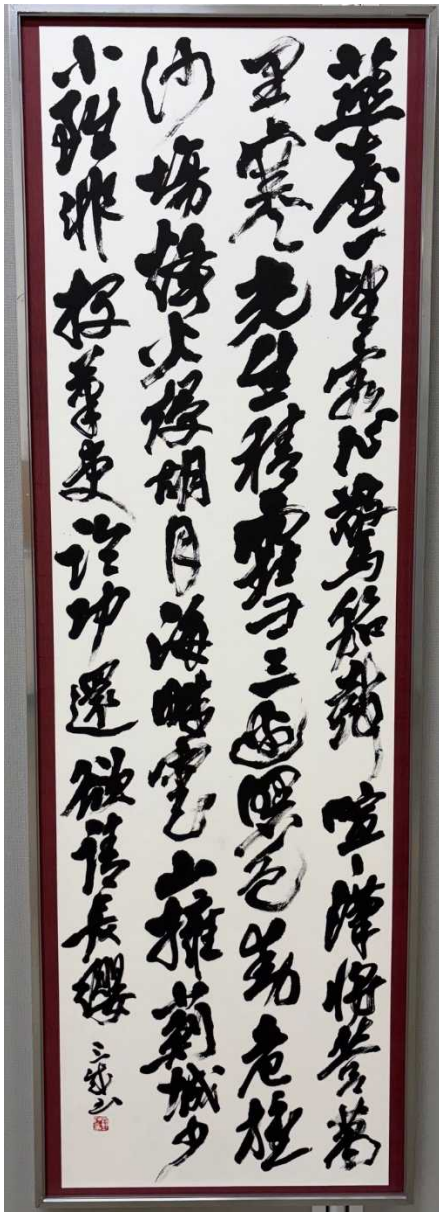 燕臺一望客心驚笳鼓喧々漢將營萬
里寒光生積雪三邊曙色動危旌
沙場烽火侵胡月海畔雲山擁薊城少
小雖非投筆吏論功還欲請長纓